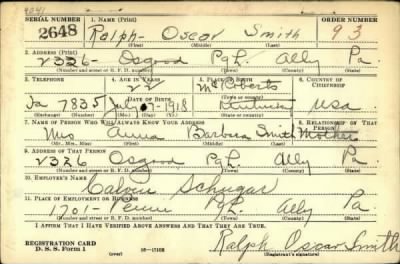 4241
SERIAL NUMBER 1. NAME (Print) ORDER NUMBER
2648 Ralph - Oscar Smith 93
(First) (Middle) (Last)
2. ADDRESS (Print)
2326 - Osgood Pgh. Ally Pa.
(Number and street or R. F. D. number) (Town) (County) (State)
3. TELEPHONE 4. AGE IN YEARS 5. PLACE OF BIRTH 6. COUNTRY OF CITIZENSHIP
22 McRoberts
DATE OF BIRTH
7835 July 1918 Kentucky USA
(Exchange) (Number) (Mo.) (Day) (Yr.) (State or country)
7. NAME OF PERSON WHO WILL ALWAYS KNOW YOUR ADDRESS 8. RELATIONSHIP OF THAT PERSON
Mrs Anna Barbara Smith Mother
(Mr., Mrs., Miss) (First) (Middle) (Last)
9. ADDRESS OF THAT PERSON
2326 Osgood Pgh. Ally Pa.
(Number and street or R. F. D. number) (Town) (County) (State)
10. EMPLOYER'S NAME
Calvin Schugar
11. PLACE OF EMPLOYMENT OR BUSINESS
1701 - Penn Pgh. Ally Pa.
(Number and street or R. F. D. number) (Town) (County) (State)
I AFFIRM THAT I HAVE VERIFIED ABOVE ANSWERS AND THAT THEY ARE TRUE.
REGISTRATION CARD
D. S. S. Form 1 (over) Ralph Oscar Smith